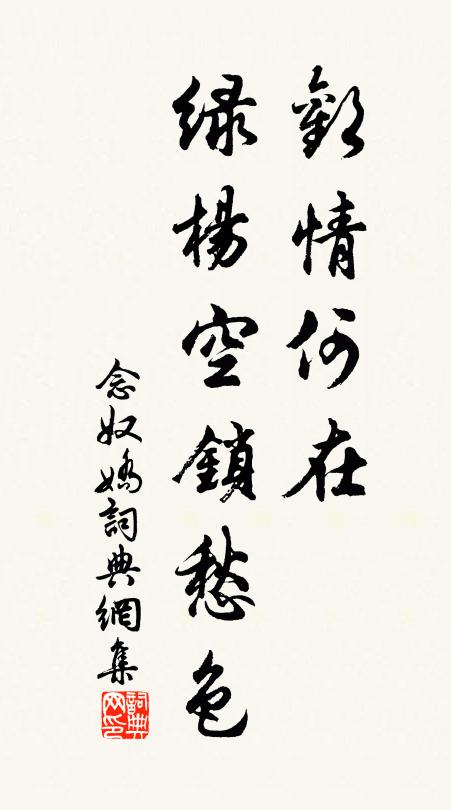 歡情何在
綠楊空鎖愁色
念奴嬌詞典網集
詞典
网印